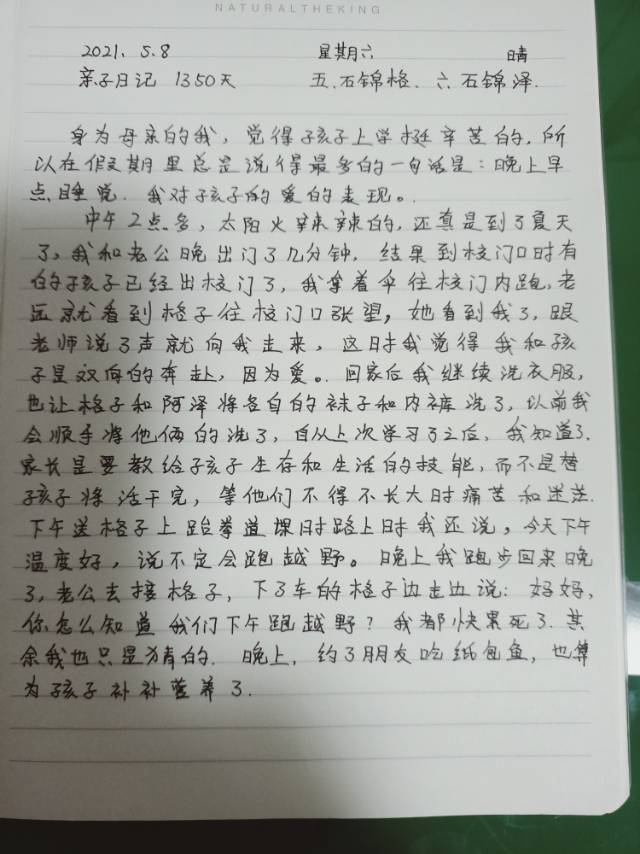 NATURALTHEKING
2021. 5.8 星期六 晴
亲子日记 1350天 五.石锦格、六石锦泽.
身为母亲的我，觉得孩子上学挺辛苦的，所
以在假期里总是说得最多的一句话是：晚上早
点睡觉. 我对孩子的爱的表现。.
中午2点多，太阳火辣辣的，还真是到了夏天
了，我和老公晚出门了几分钟，结果到校门口时有
的孩子已经出校门了，我拿着伞往校门内跑，老
远就看到格子往校门口张望，她看到我了，跟
老师说了声就向我走来，这时我觉得我和孩
子是双向的奔赴，因为爱。. 回家后我继续洗衣服，
也让格子和阿泽将各自的袜子和内裤洗了，以前我
会顺手将他俩的洗了，自从上次学习了之后，我知道了.
家长是要教给孩子生存和生活的技能，而不是替
孩子将活干完，等他们不得不长大时痛苦和迷茫.
下午送格子上跆拳道课时路上时我还说，今天下午
温度好，说不定会跑越野。晚上我跑步回来晚
了，老公去接格子，下了车的格子边走边说：好妈，
你怎么知道我们下午跑越野？我都快累死了. 其
余我也只是猜的. 晚上，约了朋友吃纸包鱼，也算
为孩子补补营养了.